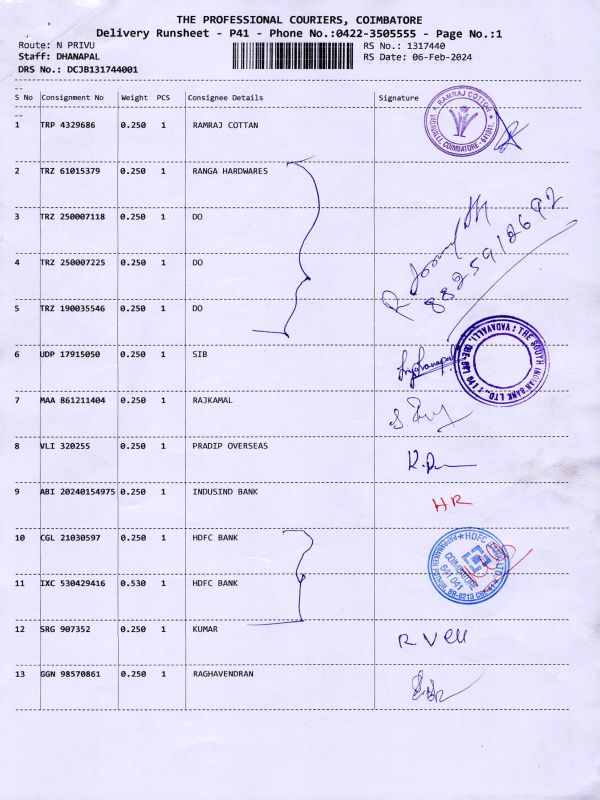 THE PROFESSIONAL COURIERS, COIMBATORE
Delivery Runsheet - P41 - Phone No.:0422-3505555 - Page No.:1
Route: N PRIVU
RS No.: 1317440
Staff: DHANAPAL
RS Date: 06-Feb-2024
DRS No.: DCJB131744001
S No Consignment No Weight PCS Consignee Details Signature
1 TRP 4329686 0.250 1 RAMRAJ COTTAN
RAMRAJ COTTON
VADAVALLI, COIMBATORE - 641041.
2 TRZ 61015379 0.250 1 RANGA HARDWARES
3 TRZ 250007118 0.250 1 DO
4 TRZ 250007225 0.250 1 DO
8825912692
5 TRZ 190035546 0.250 1 DO
6 UDP 17915050 0.250 1 SIB
THE SOUTH INDIAN BANK LTD.
VADAVALLI
7 MAA 861211404 0.250 1 RAJKAMAL
8 VLI 320255 0.250 1 PRADIP OVERSEAS
9 ABI 20240154975 0.250 1 INDUSIND BANK
HR
10 CGL 21030597 0.250 1 HDFC BANK
HDFC BANK LTD
COIMBATORE
641 041
11 IXC 530429416 0.530 1 HDFC BANK
12 SRG 907352 0.250 1 KUMAR
13 GGN 98570861 0.250 1 RAGHAVENDRAN